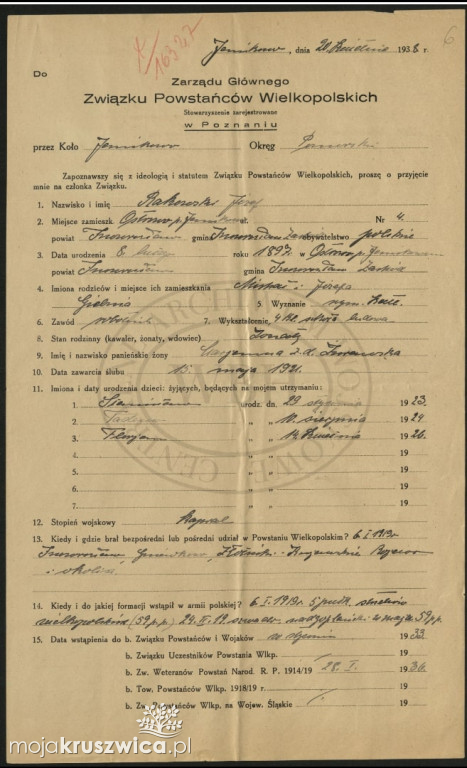 6
16327
Janikowo, dnia 20 kwietnia 1938 r.
Do
Zarządu Głównego
Związku Powstańców Wielkopolskich
Stowarzyszenie zarejestrowane
w Poznaniu
przez Koło Janikowo Okręg
Zapoznawszy się z ideologią i statutem Związku Powstańców Wielkopolskich, proszę o przyjęcie
mnie na członka Związku.
1. Nazwisko i imię Rakowski Józef
2. Miejsce zamieszk. Ostrowo p. Janikowo ul. Nr 4
powiat Inowrocław gmina Inowrocław Zach. obywatelstwo polskie
3. Data urodzenia 8 lutego roku 1897 w Ostrowo p. Janikowem
powiat Inowrocław gmina Inowrocław Zachód
4. Imiona rodziców i miejsce ich zamieszkania Michał i Józefa
5. Wyznanie rzym. kat.
6. Zawód robotnik 7. Wykształcenie, 4 kl. szkoła ludowa
8. Stan rodzinny (kawaler, żonaty, wdowiec) żonaty
9. Imię i nazwisko panieńskie żony Marjanna z d. Iwanowska
10. Data zawarcia ślubu 15 maja 1921.
11. Imiona i daty urodzenia dzieci: żyjących, będących na mojem utrzymaniu:
1. Stanisława urodz. dn. 29 stycznia 1923
2. " " 10 sierpnia 1924
3. Florjan " " 14 kwietnia 1926
4. " " 19
5. " " 19
6. " " 19
7. " " 19
12. Stopień wojskowy kapral
13. Kiedy i gdzie brał bezpośredni lub pośredni udział w Powstaniu Wielkopolskim? 6 I 1919r
Inowrocław, Janikowo, Złotniki Kujawskie
i okolica
14. Kiedy i do jakiej formacji wstąpił w armii polskiej? 6. I. 1919r. 5 pułk strzelców
wielkopolskich (59 p.p.) 24. 19. 59 p.p.
15. Data wstąpienia do b. Związku Powstańców i Wojaków w styczniu 1933.
b. Związku Uczestników Powstania Wlkp. 19
b. Zw. Weteranów Powstań Narod. R. P. 1914/19 28. I. 1936
b. Tow. Powstańców Wlkp. 1918/19 r. 19
b. Zw. Powstańców Wlkp. na Wojew. Śląskie 19
CENTRALNE ARCHIWUM WOJSKOWE
mojakruszwica.pl